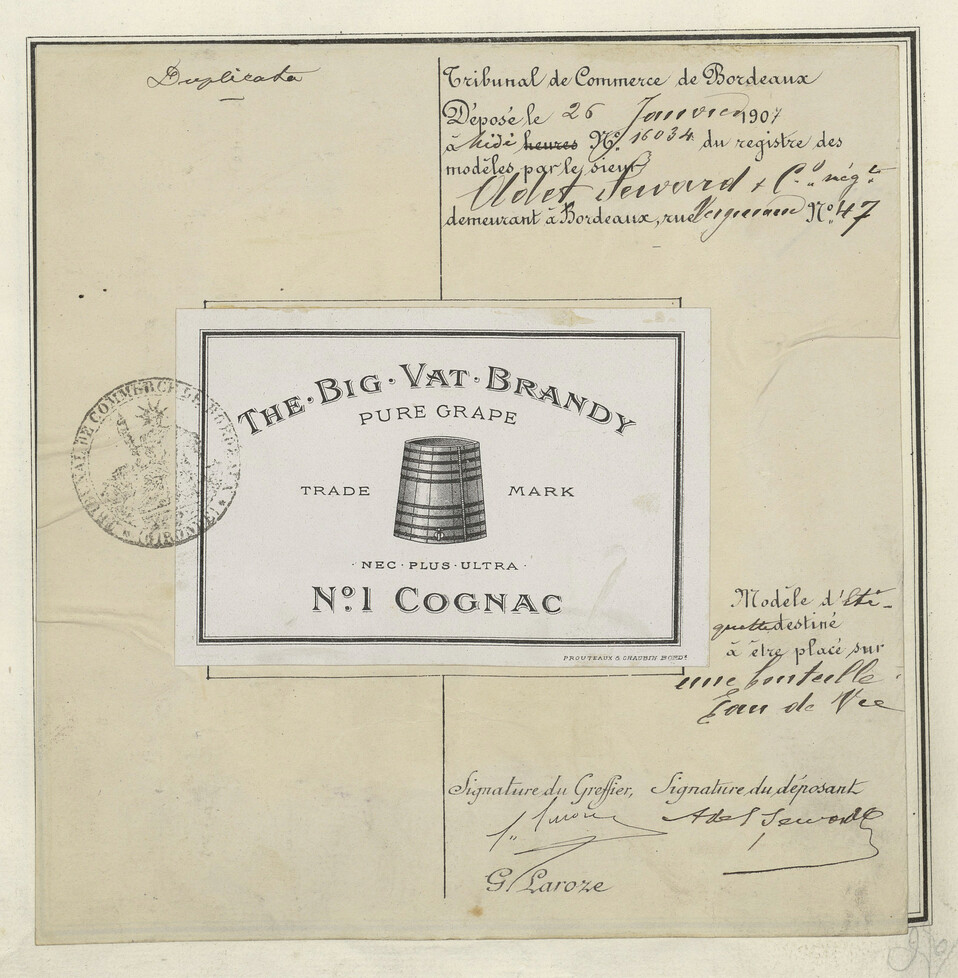 Duplicata
Tribunal de Commerce de Bordeaux
Déposé le 26 Janvier 1907
à Midi heures No. 16034 du registre des
modèles par le sieur
Adet Seward & Co. négts
demeurant à Bordeaux, rue Vergniaud No. 47
THE · BIG · VAT · BRANDY
PURE GRAPE
TRADE MARK
· NEC · PLUS · ULTRA ·
No. 1 COGNAC
PROUTEAUX & CHAUBIN BORDX
TRIBUNAL DE COMMERCE DE BORDEAUX
* (GIRONDE) *
Modèle d'Eti-
quette destiné
à être placé sur
une bouteille
Eau de Vie
Signature du Greffier, Signature du déposant
Adet Seward
G. Laroze